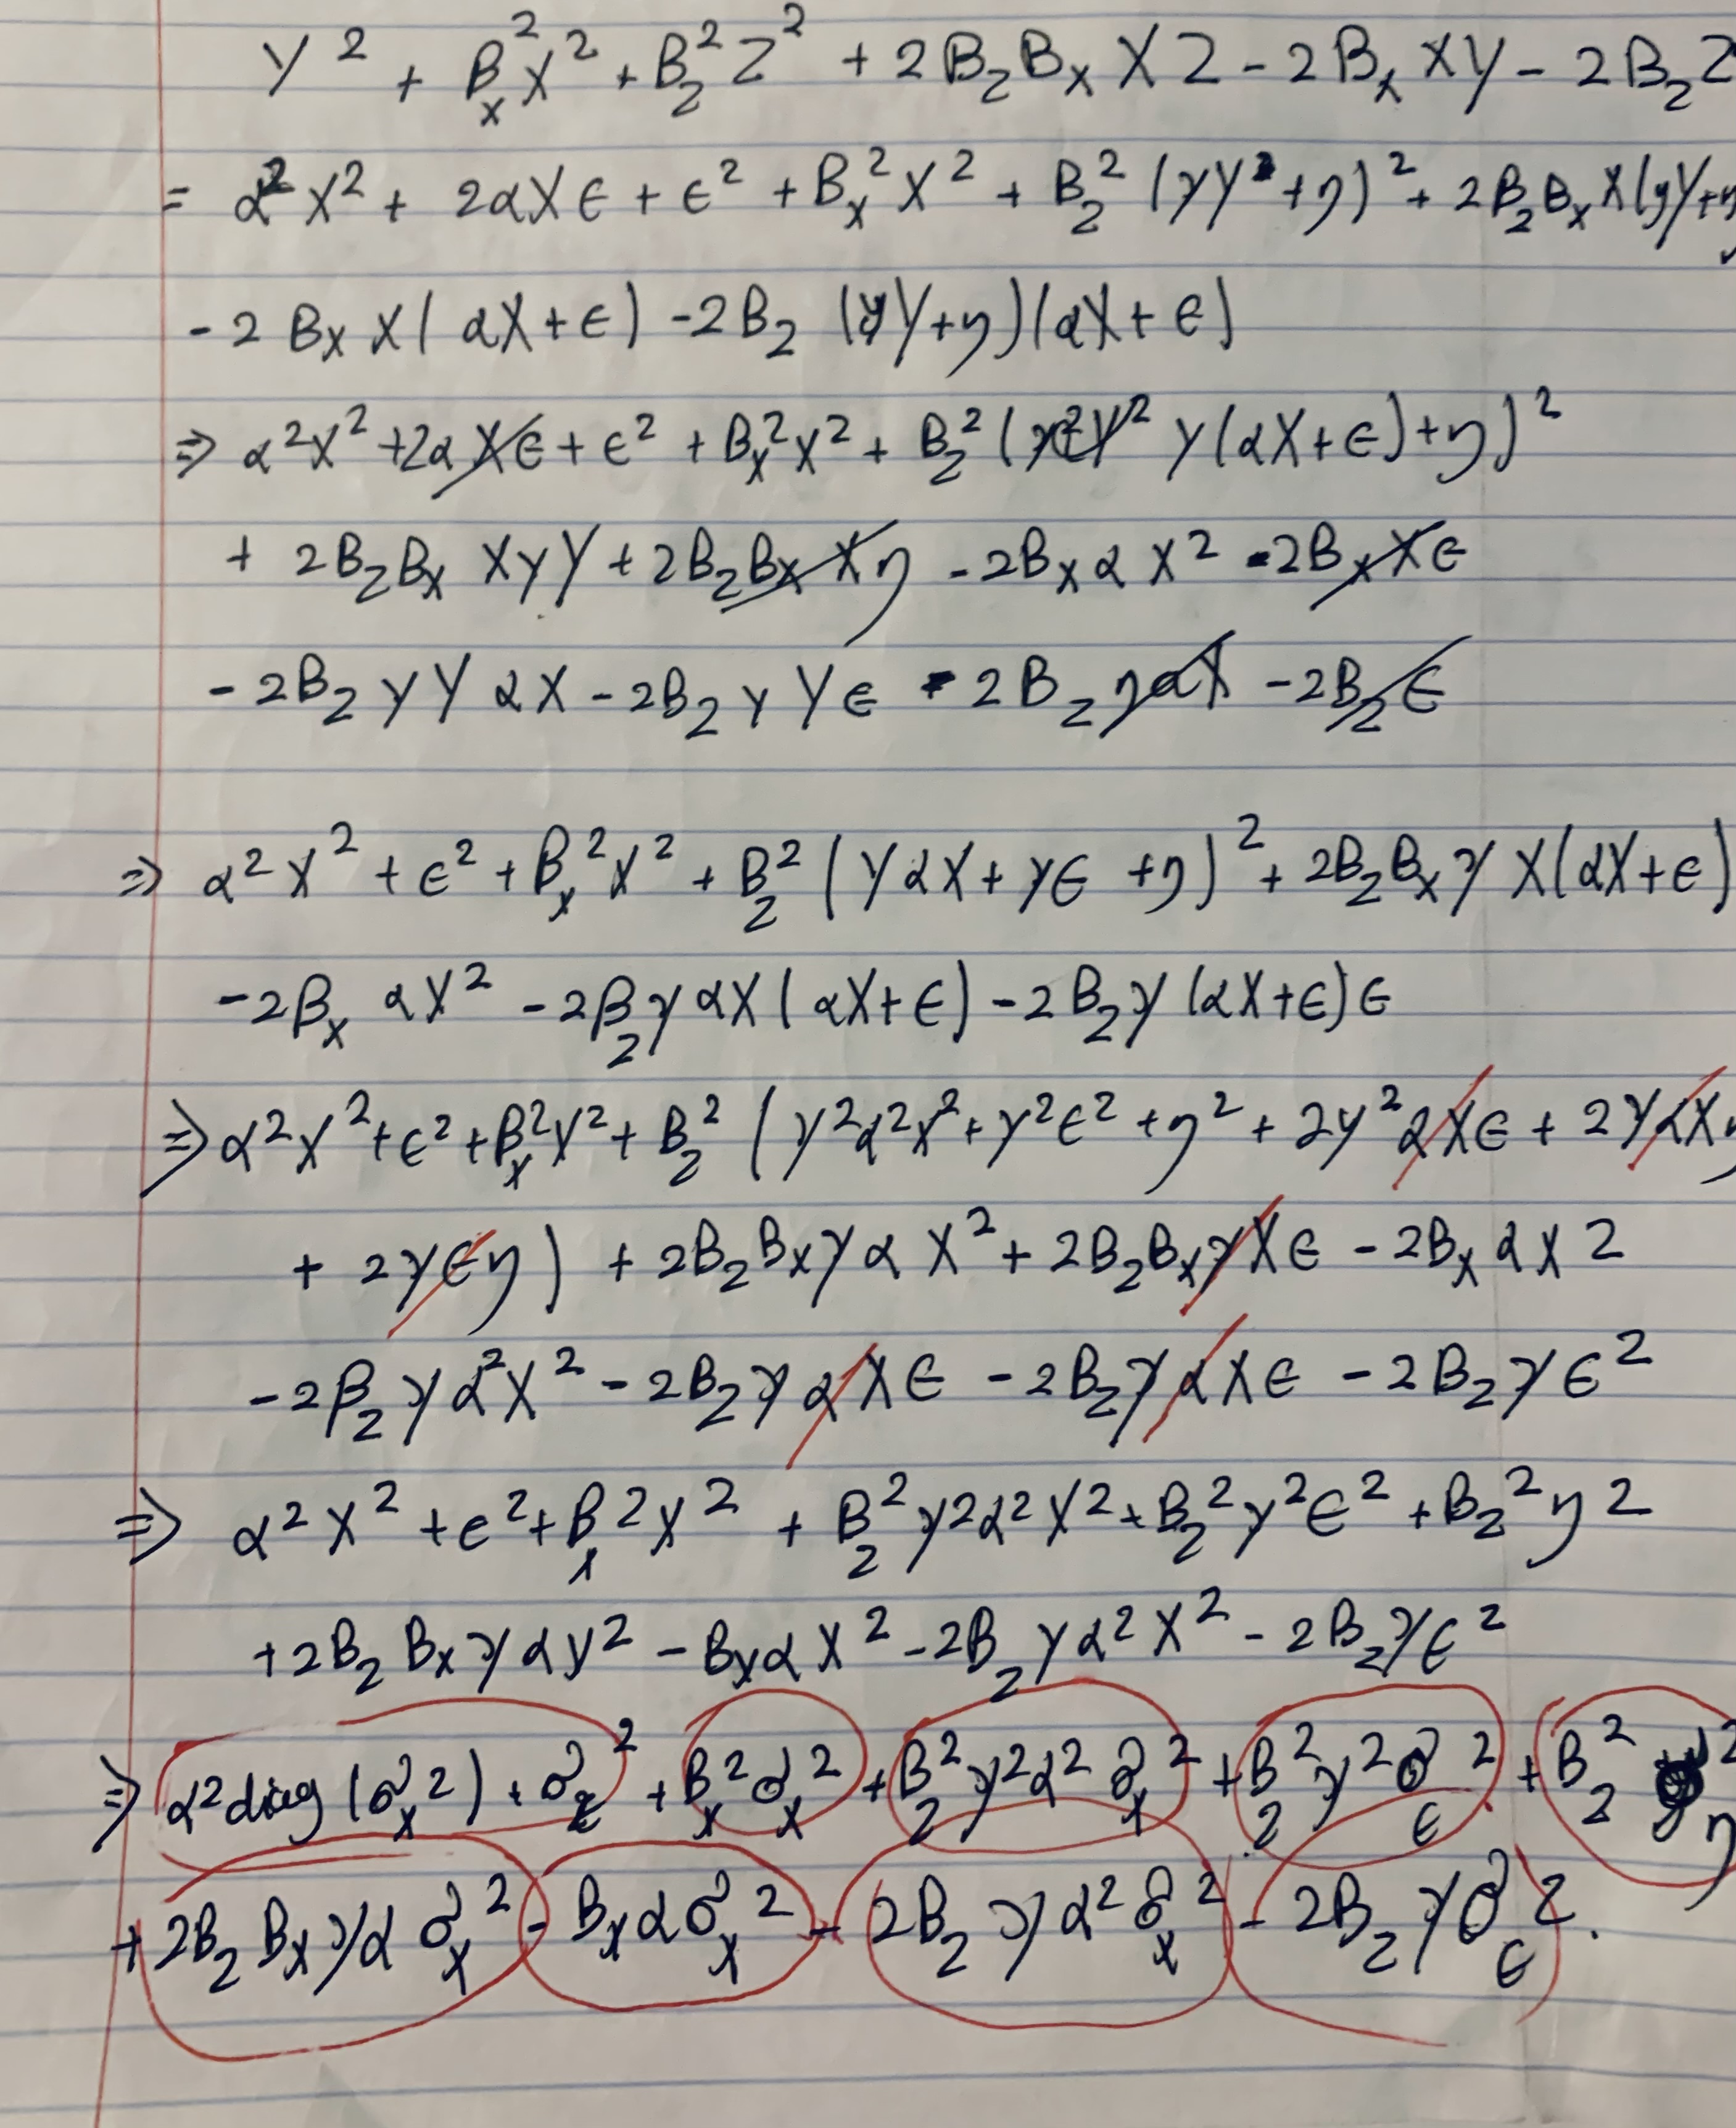 Y² + Bₓ²X² + B_z²Z² + 2B_zBₓXZ - 2BₓXY - 2B_zZ
= α²X² + 2αXϵ + ϵ² + Bₓ²X² + B_z²(γY+η)² + 2B_zBₓX(γY+η
- 2BₓX(αX+ϵ) - 2B_z(γY+η)(αX+ϵ)
⇒ α²X² + 2αXϵ + ϵ² + Bₓ²X² + B_z²(γ(αX+ϵ)+η)²
+ 2B_zBₓXγY + 2B_zBₓXη - 2BₓαX² - 2BₓXϵ
- 2B_zγYαX - 2B_zγYϵ - 2B_zηαX - 2B_zϵ
⇒ α²X² + ϵ² + Bₓ²X² + B_z²(γαX + γϵ + η)² + 2B_zBₓγX(αX+ϵ)
- 2BₓαX² - 2β_zγαX(αX+ϵ) - 2B_zγ(αX+ϵ)ϵ
⇒ α²X² + ϵ² + Bₓ²X² + B_z²(γ²α²X² + γ²ϵ² + η² + 2γ²αXϵ + 2γαXη
+ 2γϵη) + 2B_zBₓγαX² + 2B_zBₓγXϵ - 2BₓαX2
- 2β_zγα²X² - 2B_zγαXϵ - 2B_zγαXϵ - 2B_zγϵ²
⇒ α²X² + ϵ² + Bₓ²X² + B_z²γ²α²X² + B_z²γ²ϵ² + B_z²η2
+ 2B_zBₓγαy² - BₓαX² - 2B_zγα²X² - 2B_zγϵ²
⇒ α²diag(σₓ2) + σ_ϵ² + Bₓ²σₓ² + B_z²γ²α²σₓ² + B_z²γ²σ_ϵ² + B_z²σ_η²
+ 2B_zBₓγασₓ² - Bₓασₓ² - 2B_zγα²σₓ² - 2B_zγσ_ϵ2.